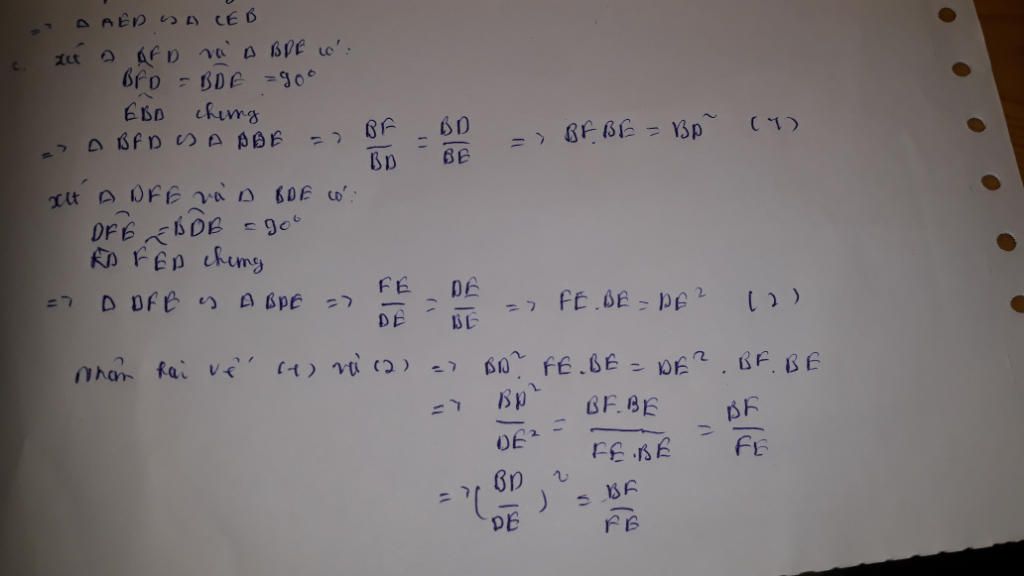 => Δ AED ∽ Δ CEB
c. xét Δ BFD và Δ BDE có:
BFD = BDE = 90°
EBD chung
=> Δ BFD ∽ Δ BDE => BF/BD = BD/BE => BF.BE = BD² (1)
xét Δ DFE và Δ BDE có:
DFE = BDE = 90°
FED chung
=> Δ DFE ∽ Δ BDE => FE/DE = DE/BE => FE.BE = DE² (2)
Nhân hai vế (1) và (2) => BD². FE.BE = DE². BF.BE
=> BD²/DE² = BF.BE/FE.BE = BF/FE
=> (BD/DE)² = BF/FE